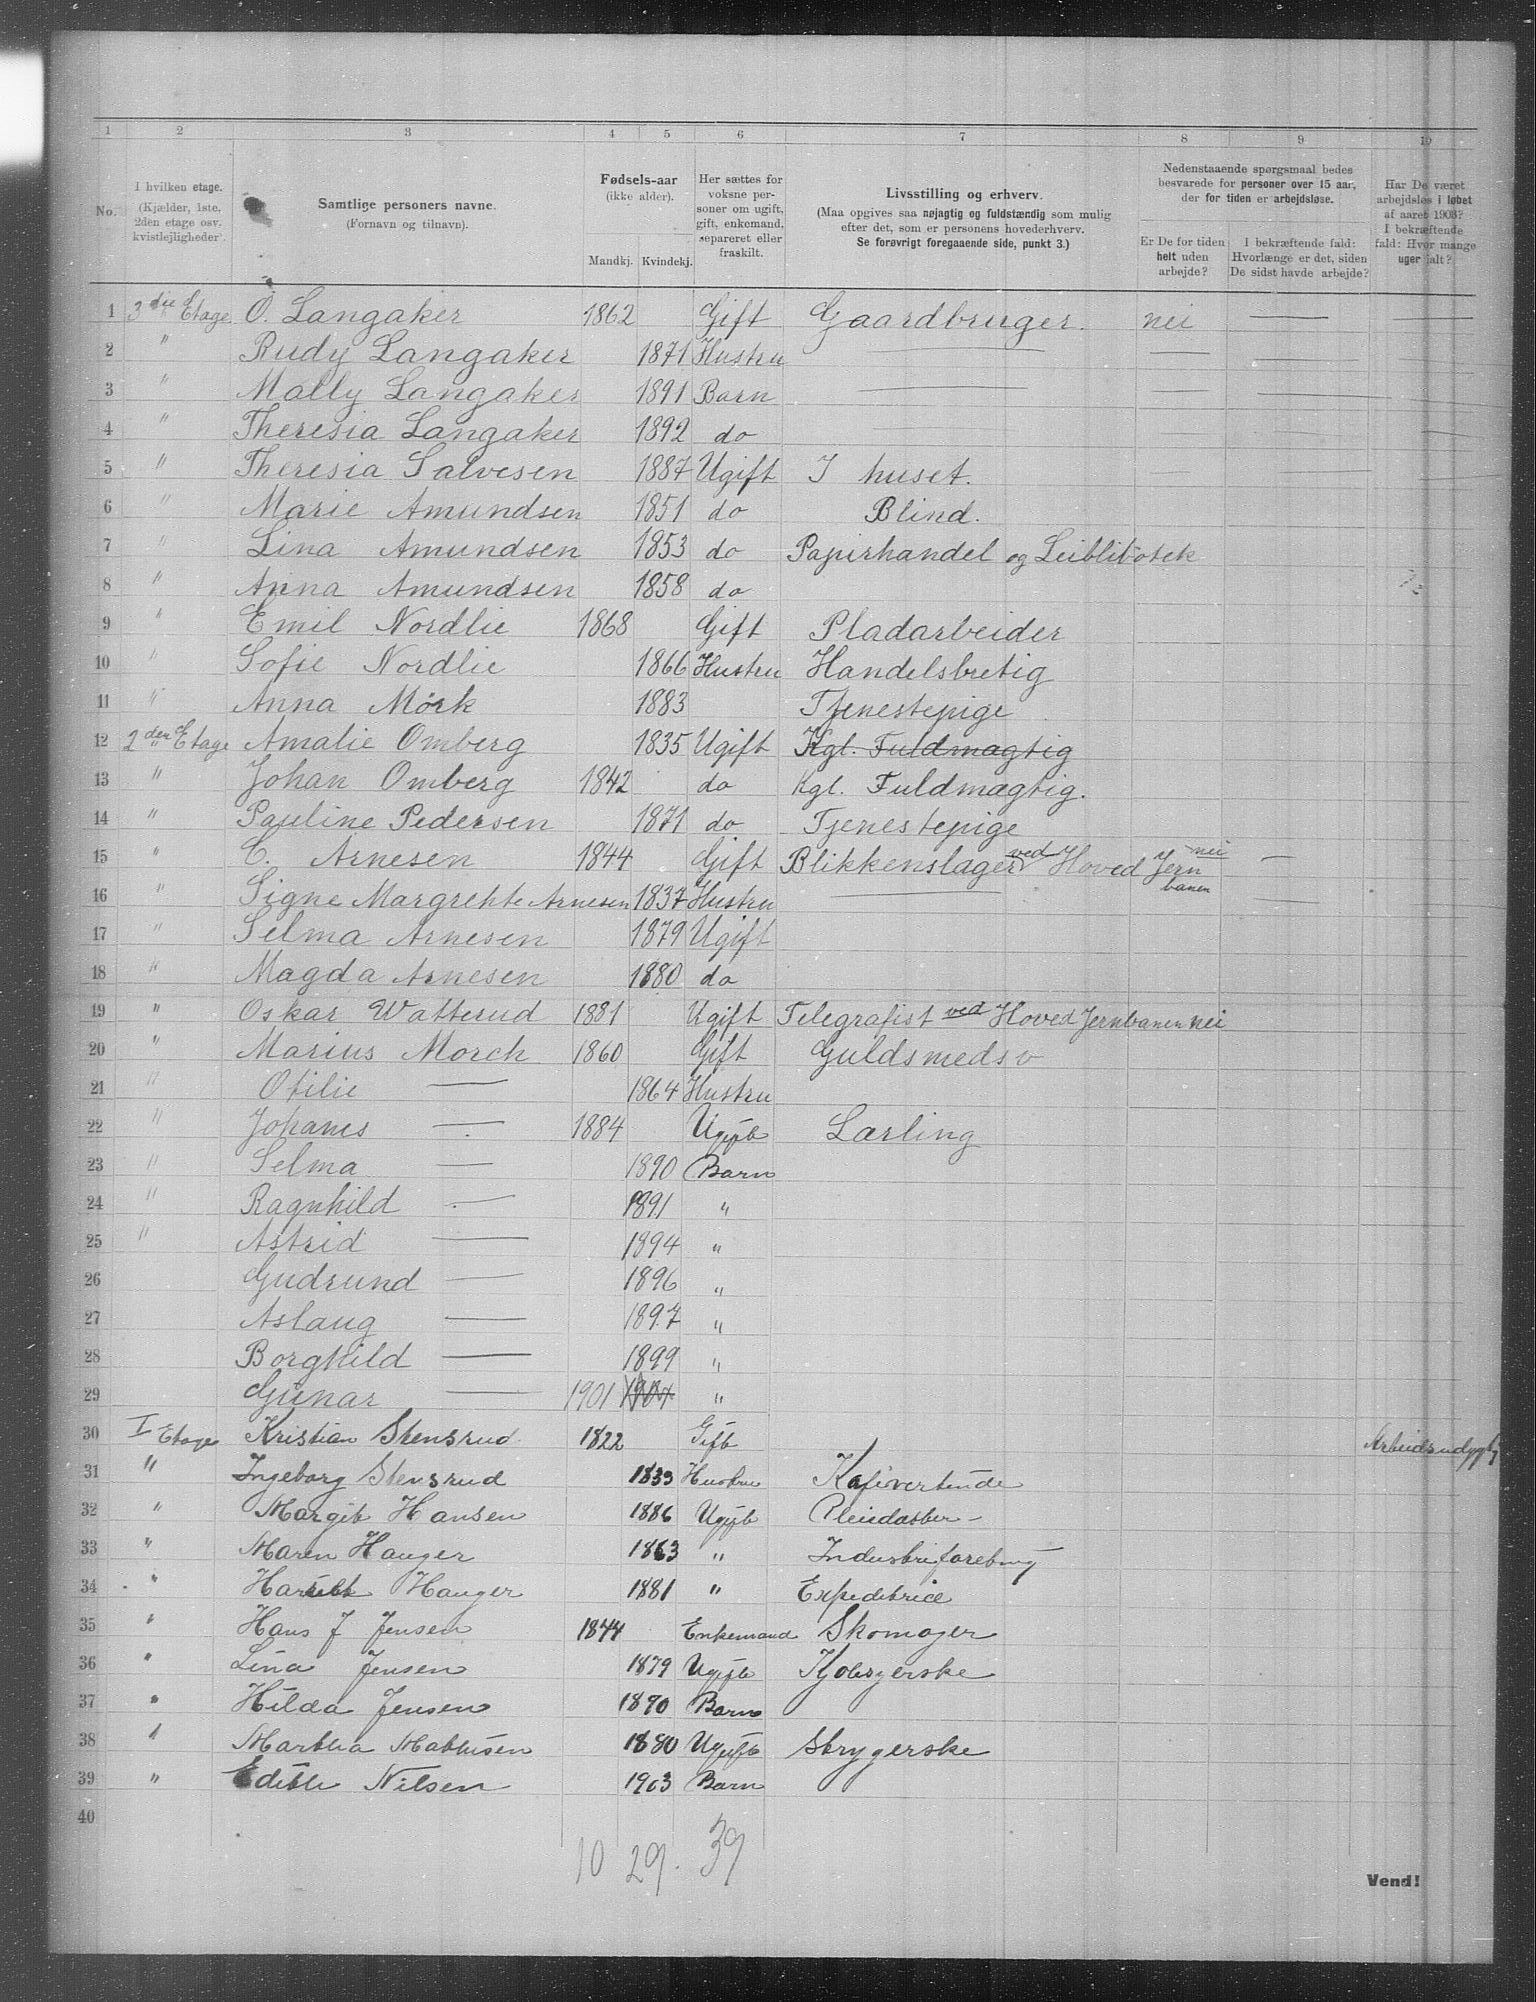 1 2 3 4 5 6 7 8 9 10
No.
I hvilken etage.
(Kjælder, 1ste,
2den etage osv.
kvistlejligheder).
Samtlige personers navne.
(Fornavn og tilnavn).
Fødsels-aar
(ikke alder).
Mandkj. Kvindekj.
Her sættes for
voksne per-
soner om ugift,
gift, enkemand,
separeret eller
fraskilt.
Livsstilling og erhverv.
(Maa opgives saa nøjagtig og fuldstændig som mulig
efter det, som er personens hovederhverv.
Se forøvrigt foregaaende side, punkt 3.)
Nedenstaaende spørgsmaal bedes
besvarede for personer over 15 aar,
der for tiden er arbejdsløse.
Er De for tiden
helt uden
arbejde?
I bekræftende fald:
Hvorlænge er det, siden
De sidst havde arbejde?
Har De været
arbejdsløs i løbet
af aaret 1903?
I bekræftende
fald: Hvor mange
uger ialt?
1 3die Etage O. Langaker 1862 Gift Gaardbruger. nei — —
2 " Rudy Langaker 1871 Hustru — — —
3 " Mally Langaker 1891 Barn —
4 " Theresia Langaker 1892 do
5 " Theresia Salvesen 1887 Ugift I huset.
6 " Marie Amundsen 1851 do Blind.
7 " Lina Amundsen 1853 do Papirhandel og Leiblibotek
8 " Anna Amundsen 1858 do
9 " Emil Nordlie 1868 Gift Pladarbeider
10 " Sofie Nordlie 1866 Hustru Handelsbretig
11 " Anna Mörk 1883 Tjenestepige
12 2den Etage Amalie Omberg 1835 Ugift Kgl. Fuldmagtig
13 " Johan Omberg 1842 do Kgl. Fuldmagtig.
14 " Pauline Pedersen 1871 do Tjenestepige
15 " C. Arnesen 1844 Gift Blikkenslager ved Hoved Jern banen nei —
16 " Signe Margrehte Arnesen 1837 Hustru —
17 " Selma Arnesen 1879 Ugift
18 " Magda Arnesen 1880 do
19 " Oskar Watterud 1881 Ugift Telegrafist ved Hoved Jernbanen nei
20 " Marius Morch 1860 Gift Guldsmedsv
21 " Otilie — 1864 Hustru
22 " Johanes — 1884 Ugift Lærling
23 " Selma — 1890 Barn
24 " Ragnhild — 1891 "
25 " Astrid — 1894 "
26 Gudrund — 1896 "
27 Aslaug — 1897 "
28 Borghild — 1899 "
29 Gunar — 1901 "
30 I Etage Kristian Stensrud 1822 Gift
31 " Ingeborg Stensrud 1833 Hustru Kafevertinde
32 " Margit Hansen 1886 Ugift
33 " Maren Hauger 1863 "
34 " Hauger 1881 " Expeditrice
35 " Hans J Jensen 1844 Enkemand Skomager
36 " Lina Jensen 1879 Ugift
37 " Hilda Jensen 1890 Barn
38 " Martha Mathisen 1880 Ugift Strygerske
39 " Edith Nilsen 1903 Barn
40
10 29. 39
Vend!